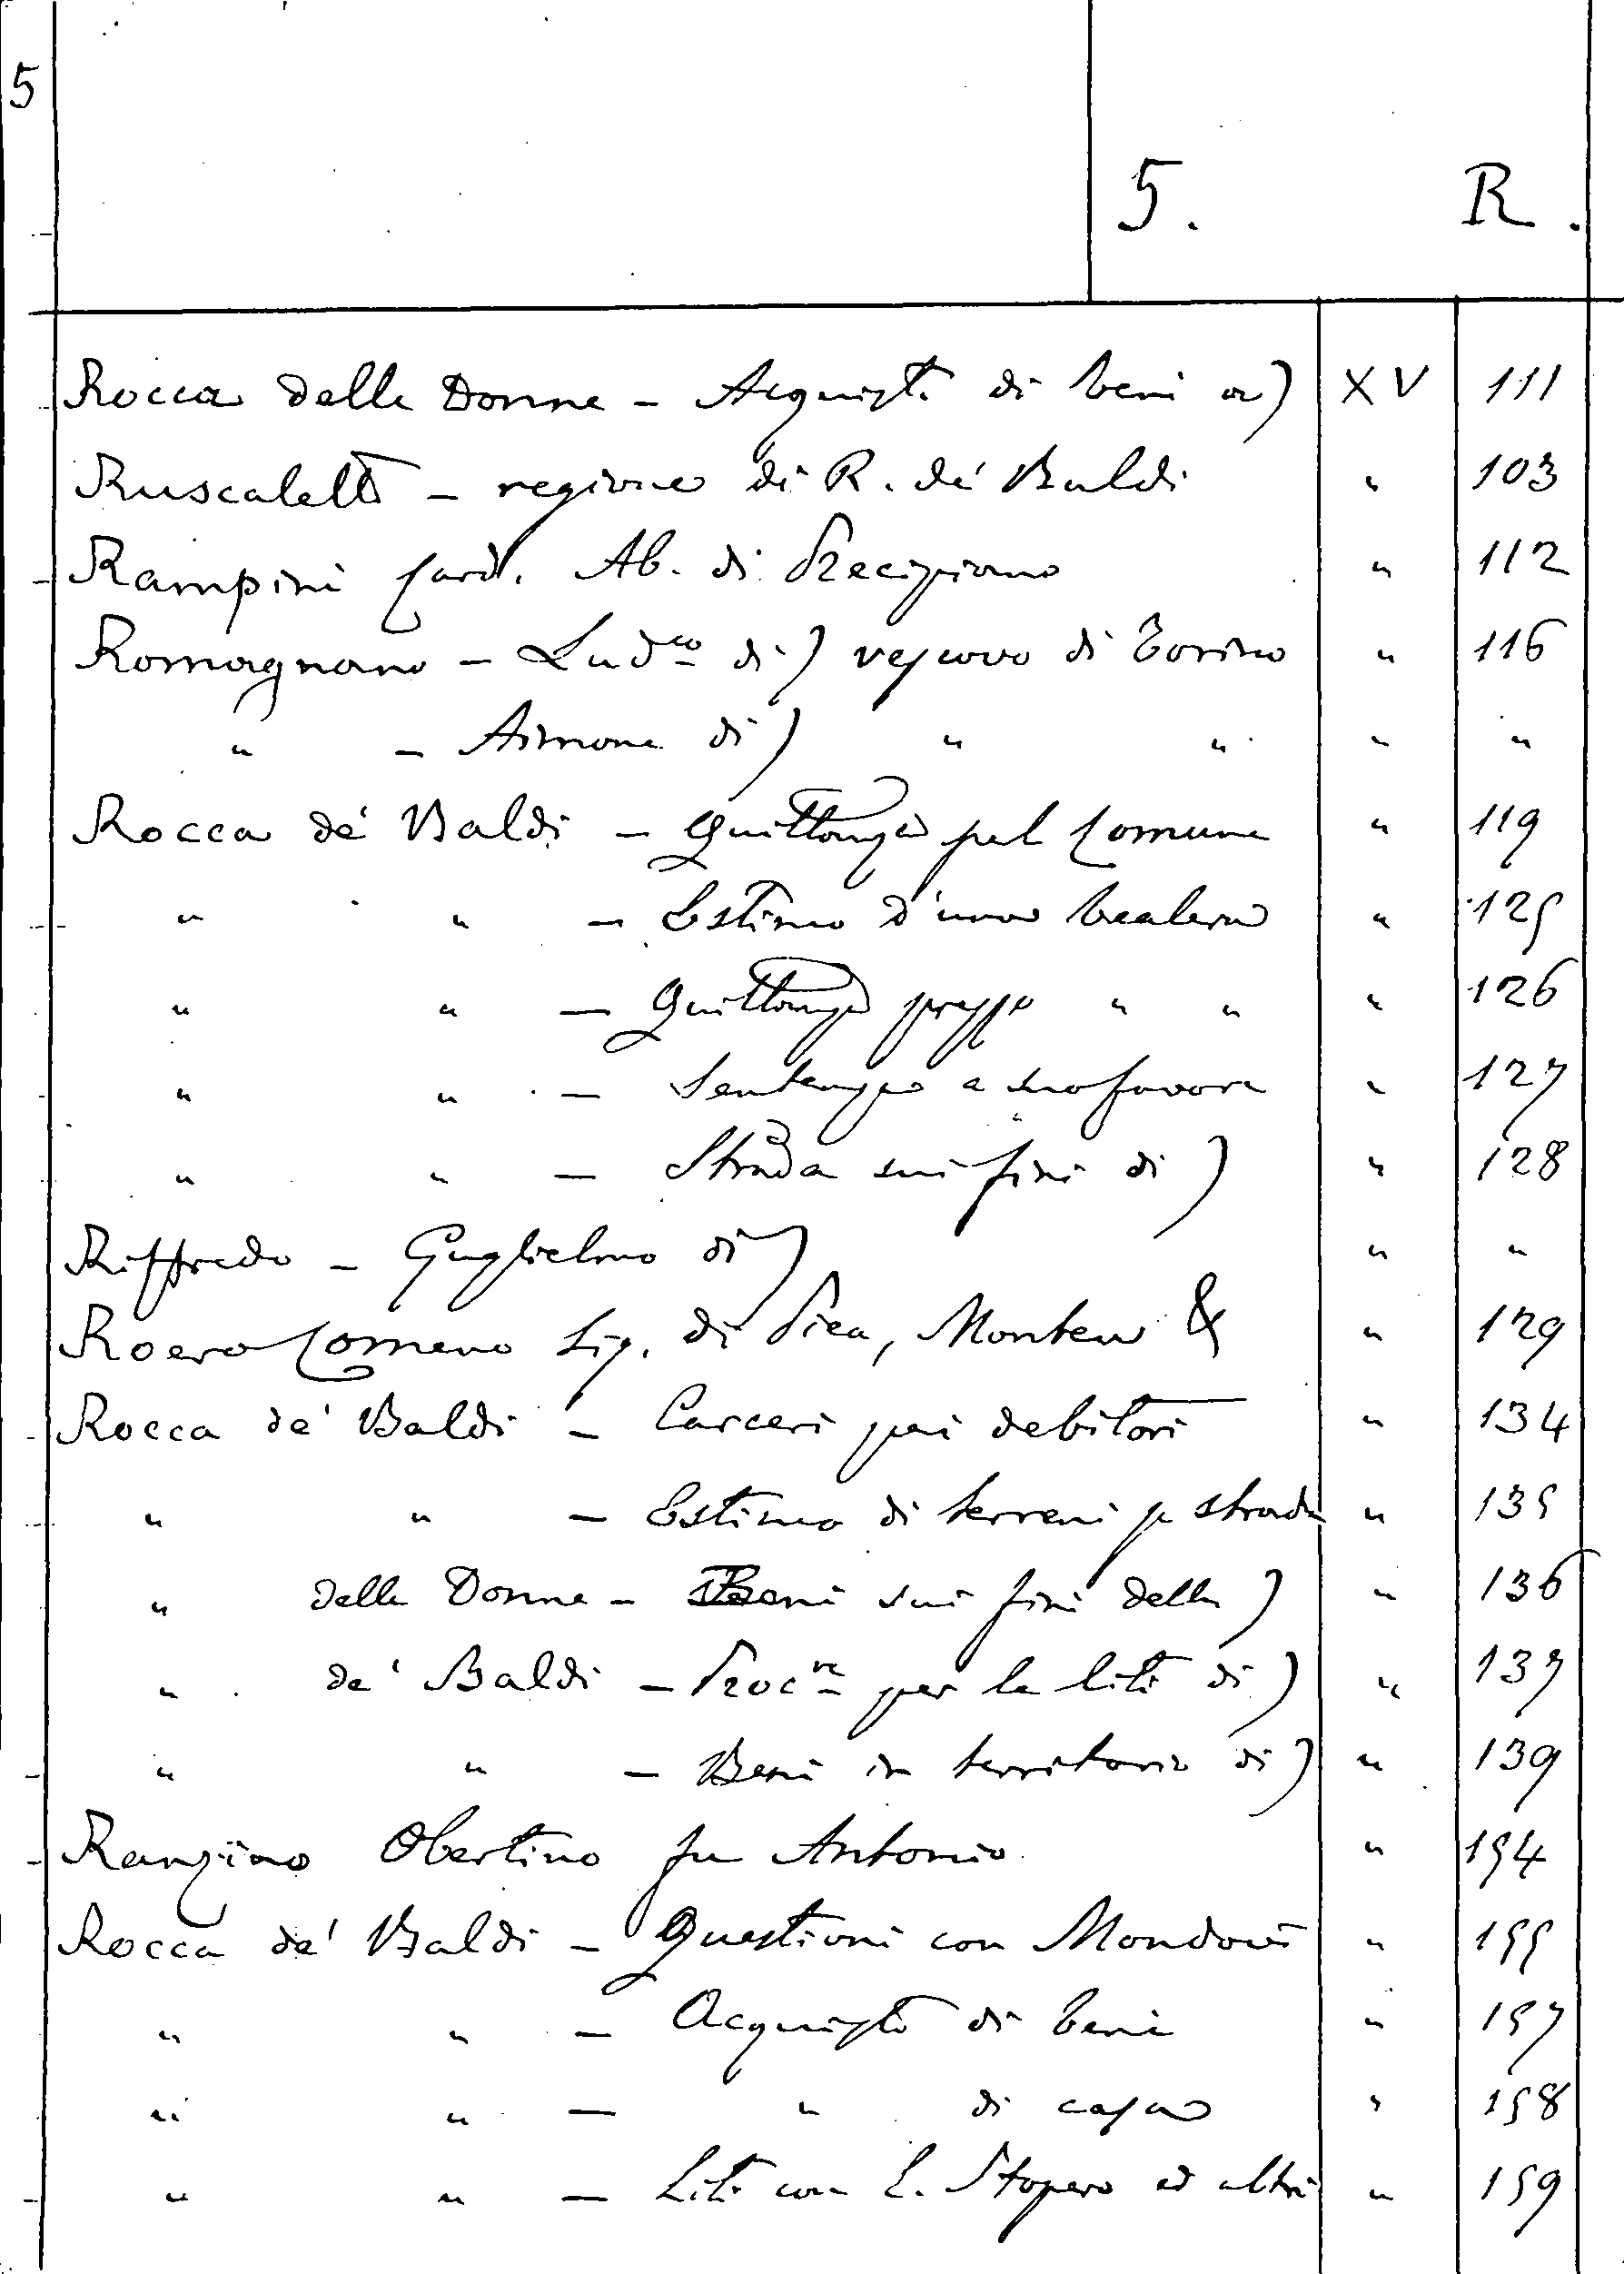 5
5. R.
Rocca delle Donne - Acquisti di beni a) XV 111
Ruscaletto - regione di R. de' Baldi " 103
Rampini Card. Ab. di Precipiano " 112
Romagnano - Lud.co di) vescovo di Torino " 116
" - Aimone di) " " " "
Rocca de' Baldi - Quittanza pel Comune " 119
" " - Estimo d'una bealera " 125
" " - Quittanza prezzo " " " 126
" " - Sentenza a suo favore " 127
" " - Strada sui fini di) " 128
Riffredo - Guglielmo di) " "
Roero Comeno Sig. di Pica, Monteu & " 129
Rocca de' Baldi - Carceri pei debitori " 134
" " - Estimo di terreni p strada " 135
" delle Donne - Beni sui fini della) " 136
" de' Baldi - Proc.re per le liti di) " 137
" " - Beni in territorio di) " 139
Ranzino Obertino fu Antonio " 154
Rocca de' Baldi - Questioni con Mondovì " 155
" " - Acquisto di beni " 157
" " - " di casa " 158
" " - Liti con L. Stopero ed altri " 159